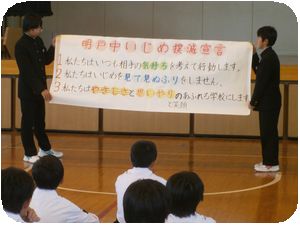 明戸中いじめ撲滅宣言
1 私たちはいつも相手の気持ちを考えて行動します。
2 私たちはいじめを見て見ぬふりをしません。
3 私たちはやさしさと思いやりのあふれる学校にします
と笑顔